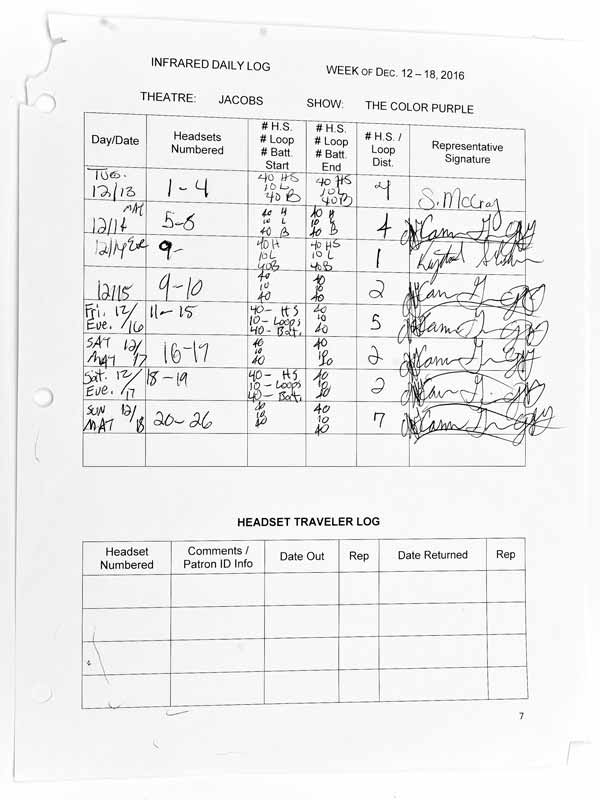 INFRARED DAILY LOG WEEK OF DEC. 12 – 18, 2016
THEATRE: JACOBS SHOW: THE COLOR PURPLE
Day/Date Headsets Numbered # H.S. # Loop # Batt. Start # H.S. # Loop # Batt. End # H.S. / Loop Dist. Representative Signature
TUES. 12/13 1-4 40 HS 10 L 40 B 40 HS 10 L 40 B 4 S. McCray
MAT 12/14 5-8 40 H 10 L 40 B 40 H 10 L 40 B 4
12/14 Eve 9- 40 H 10 L 40B 40 HS 10 L 40 B 1
12/15 9-10 40 10 40 40 10 40 2
Fri. 12/16 Eve. 11-15 40 - HS 10 - Loops 40 - Batt. 40 10 40 5
SAT 12/17 MAT 16-17 40 10 40 40 10 40 2
Sat. 12/17 Eve. 18-19 40 - HS 10 - Loops 40 - Batt. 40 10 40 2
SUN 12/18 MAT 20-26 40 10 40 40 10 40 7
HEADSET TRAVELER LOG
Headset Numbered Comments / Patron ID Info Date Out Rep Date Returned Rep
7